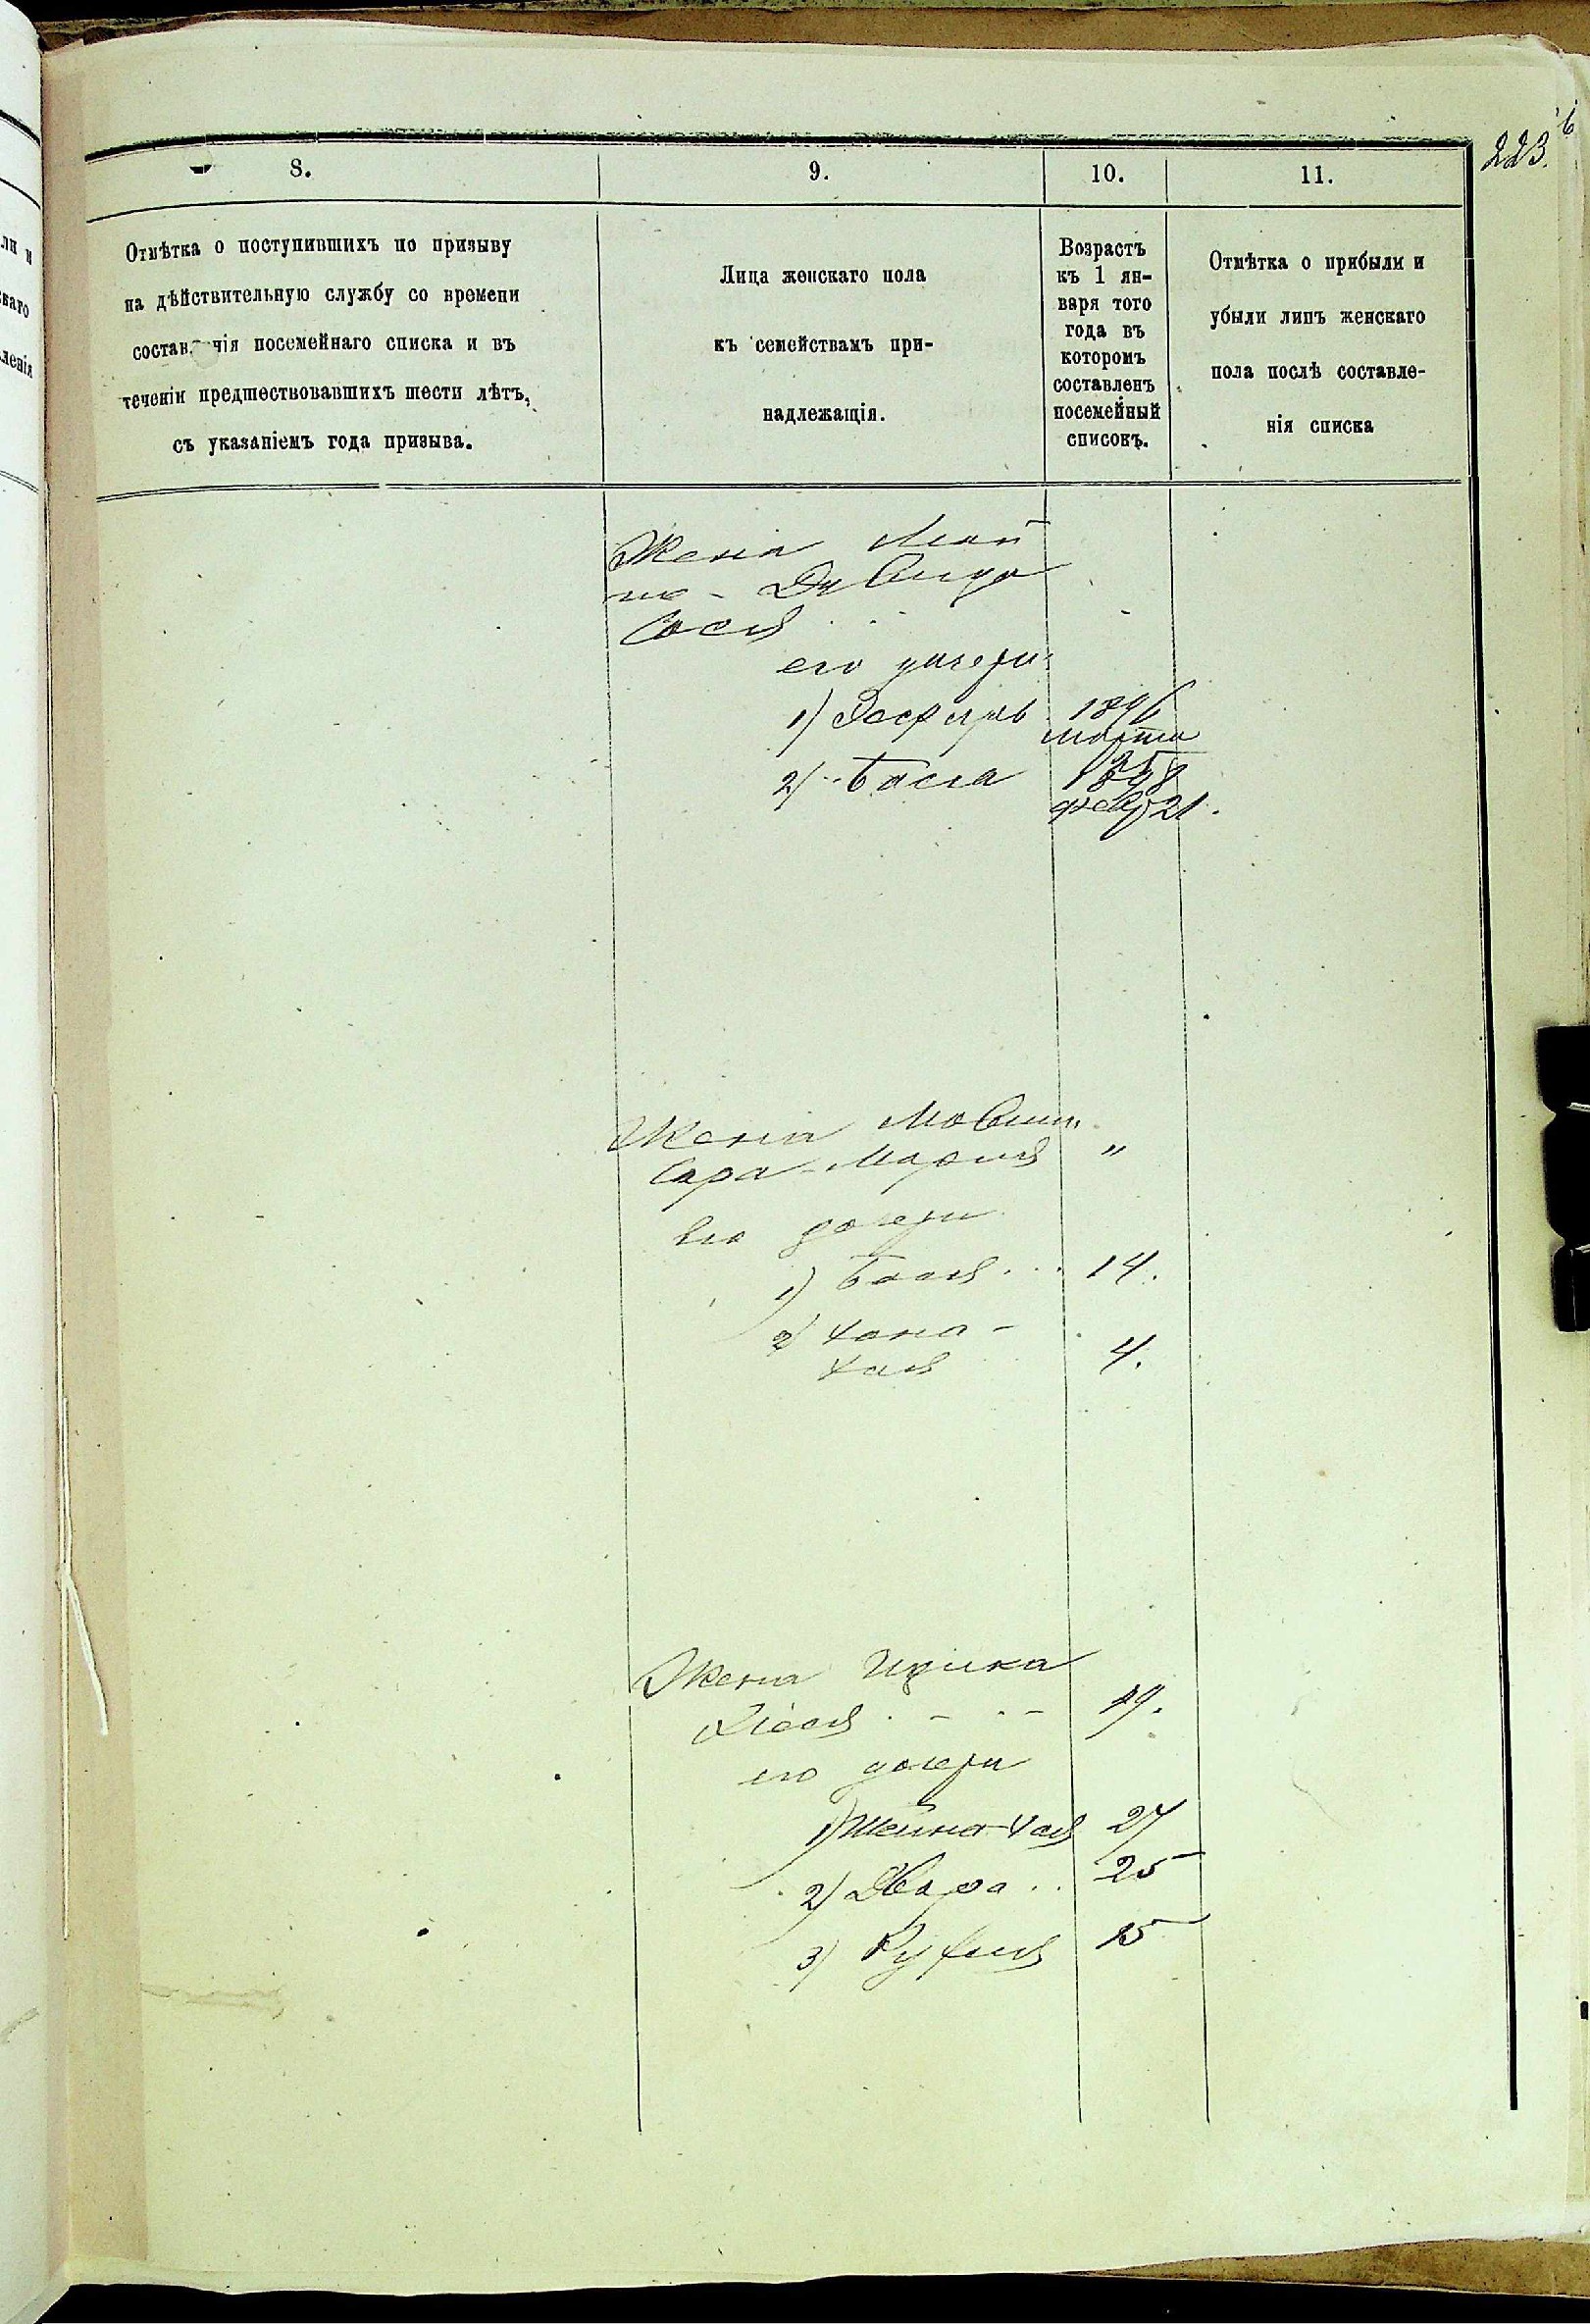 223.
8.
9.
10.
11.
Отмѣтка о поступившихъ по призыву
на дѣйствительную службу со времени
состав нія посемейнаго списка и въ
теченіи предшествовавшихъ шести лѣтъ,
съ указаніемъ года призыва.
Лица женскаго пола
къ семействамъ при-
надлежащія.
Возрастъ
къ 1 ян-
варя того
года въ
которомъ
составленъ
посемейный
списокъ.
Отмѣтка о прибыли и
убыли лицъ женскаго
пола послѣ составле-
нія списка
Жена
Давида
Сося
его дочери
1) Эсфирь 1896
марта
25
2) Бася 1898
февр 21.
Жена Мовши
Сара-Марія "
Его дочери
1) Бася 14.
2) Хана-
Хая 4.
Жена Ицика
49.
его дочери
1) Шейна-Хая 27
2) Двора 25
3) Рухля 15